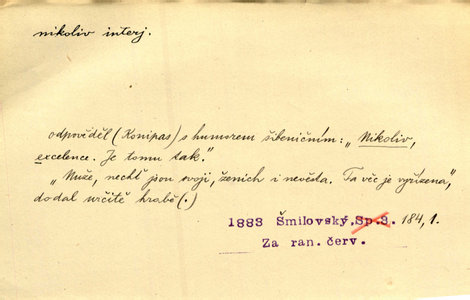 nikoliv interj.
odpověděl (Konipas) s humorem šibeničním: „Nikoliv,
excelence. Je tomu tak."
„Nuže, nechť jsou svoji, ženich i nevěsta. Ta věc je vyřízena,"
dodal určitě hrabě(.)
1883 Šmilovský, Sp.3. 184, 1.
Za ran. červ.